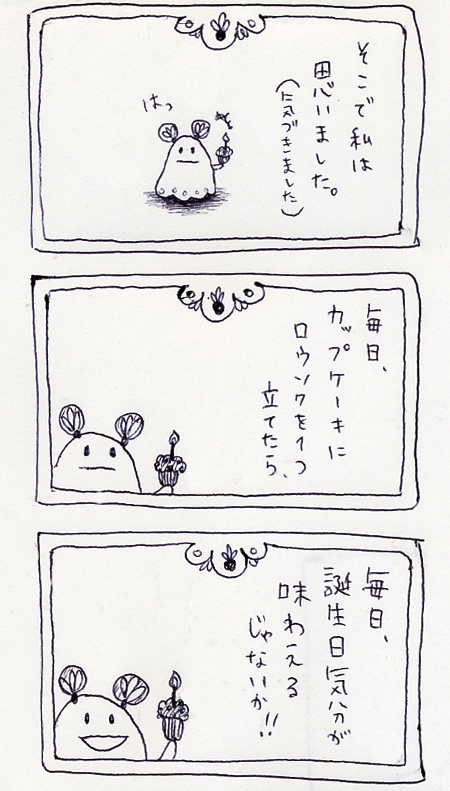 そこで私は
思いました。
(気づきました)
はっ
毎日、
カップケーキに
ロウソクを1つ
立てたら、
毎日、
誕生日気分が
味わえる
じゃないか!!